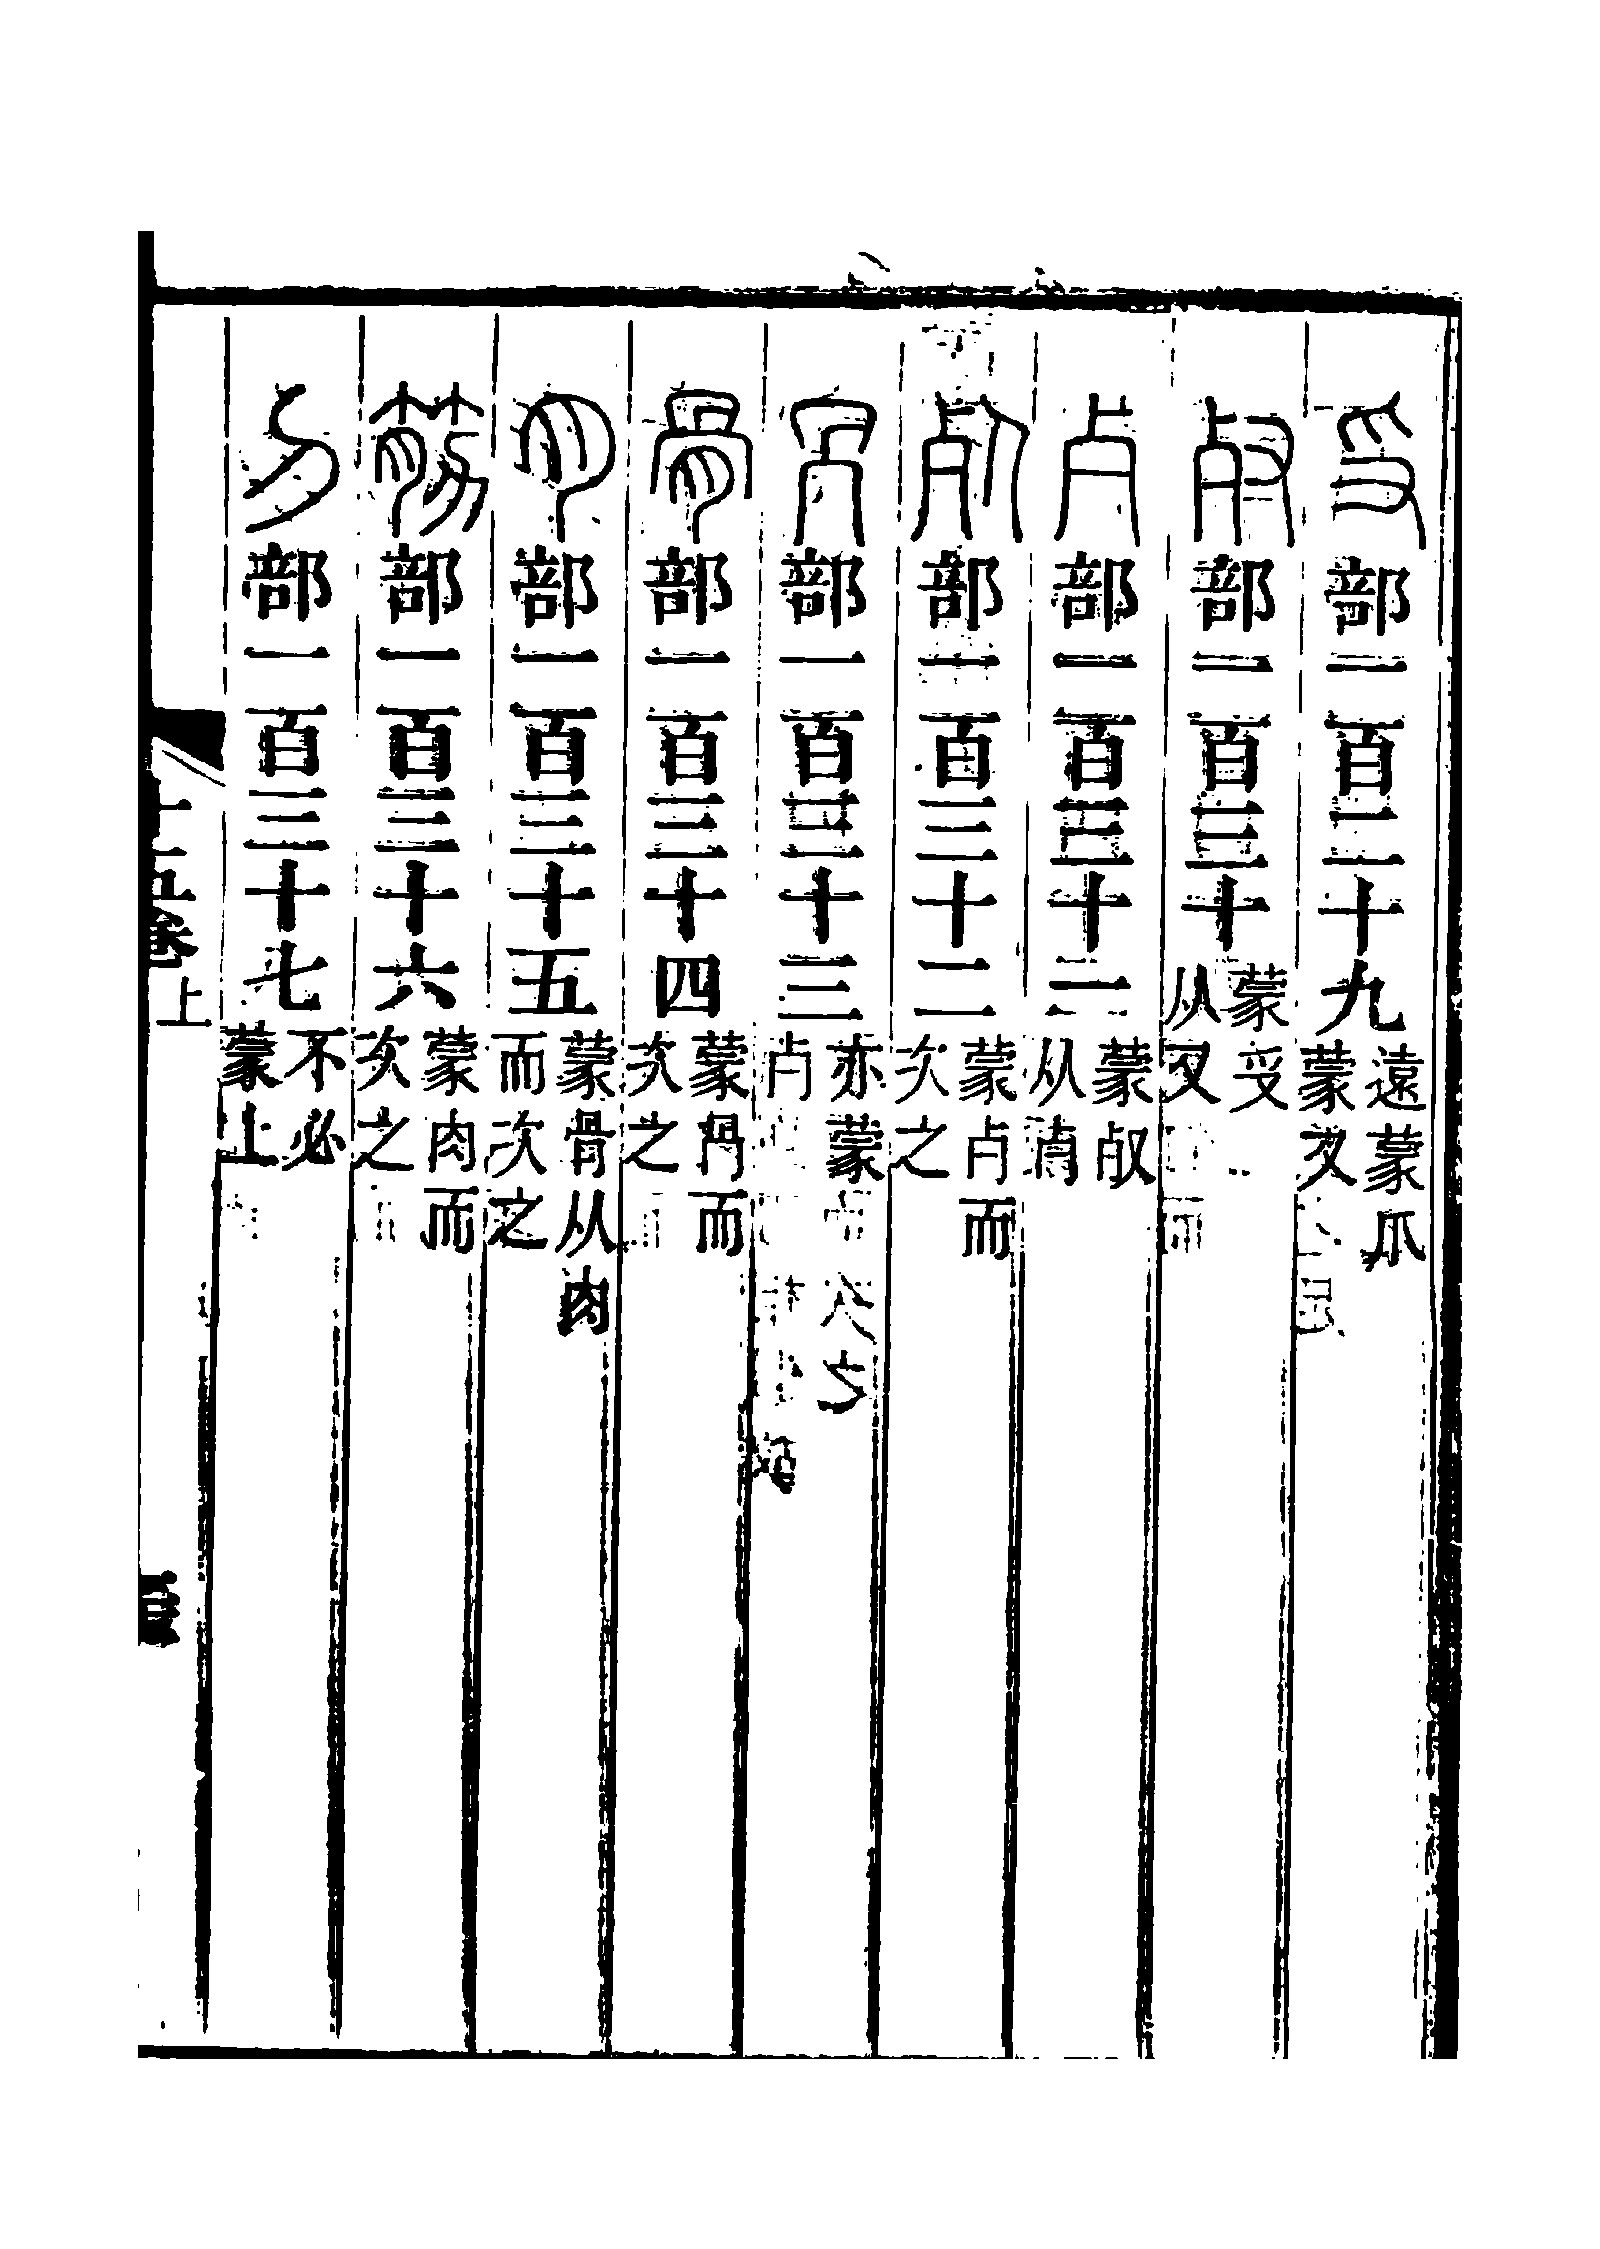 𠬪部一百二十九 遠蒙爪 蒙又
𣦼部一百三十 蒙𠬪 从又
歺部一百三十一 蒙𣦼 从
死部一百三十二 蒙歺而 次之
冎部一百三十三 亦蒙 次之 歺
骨部一百三十四 蒙冎而 次之
肉部一百三十五 蒙骨从肉 而次之
筋部一百三十六 蒙肉而 次之
刀部一百三十七 不必 蒙上
十五卷上